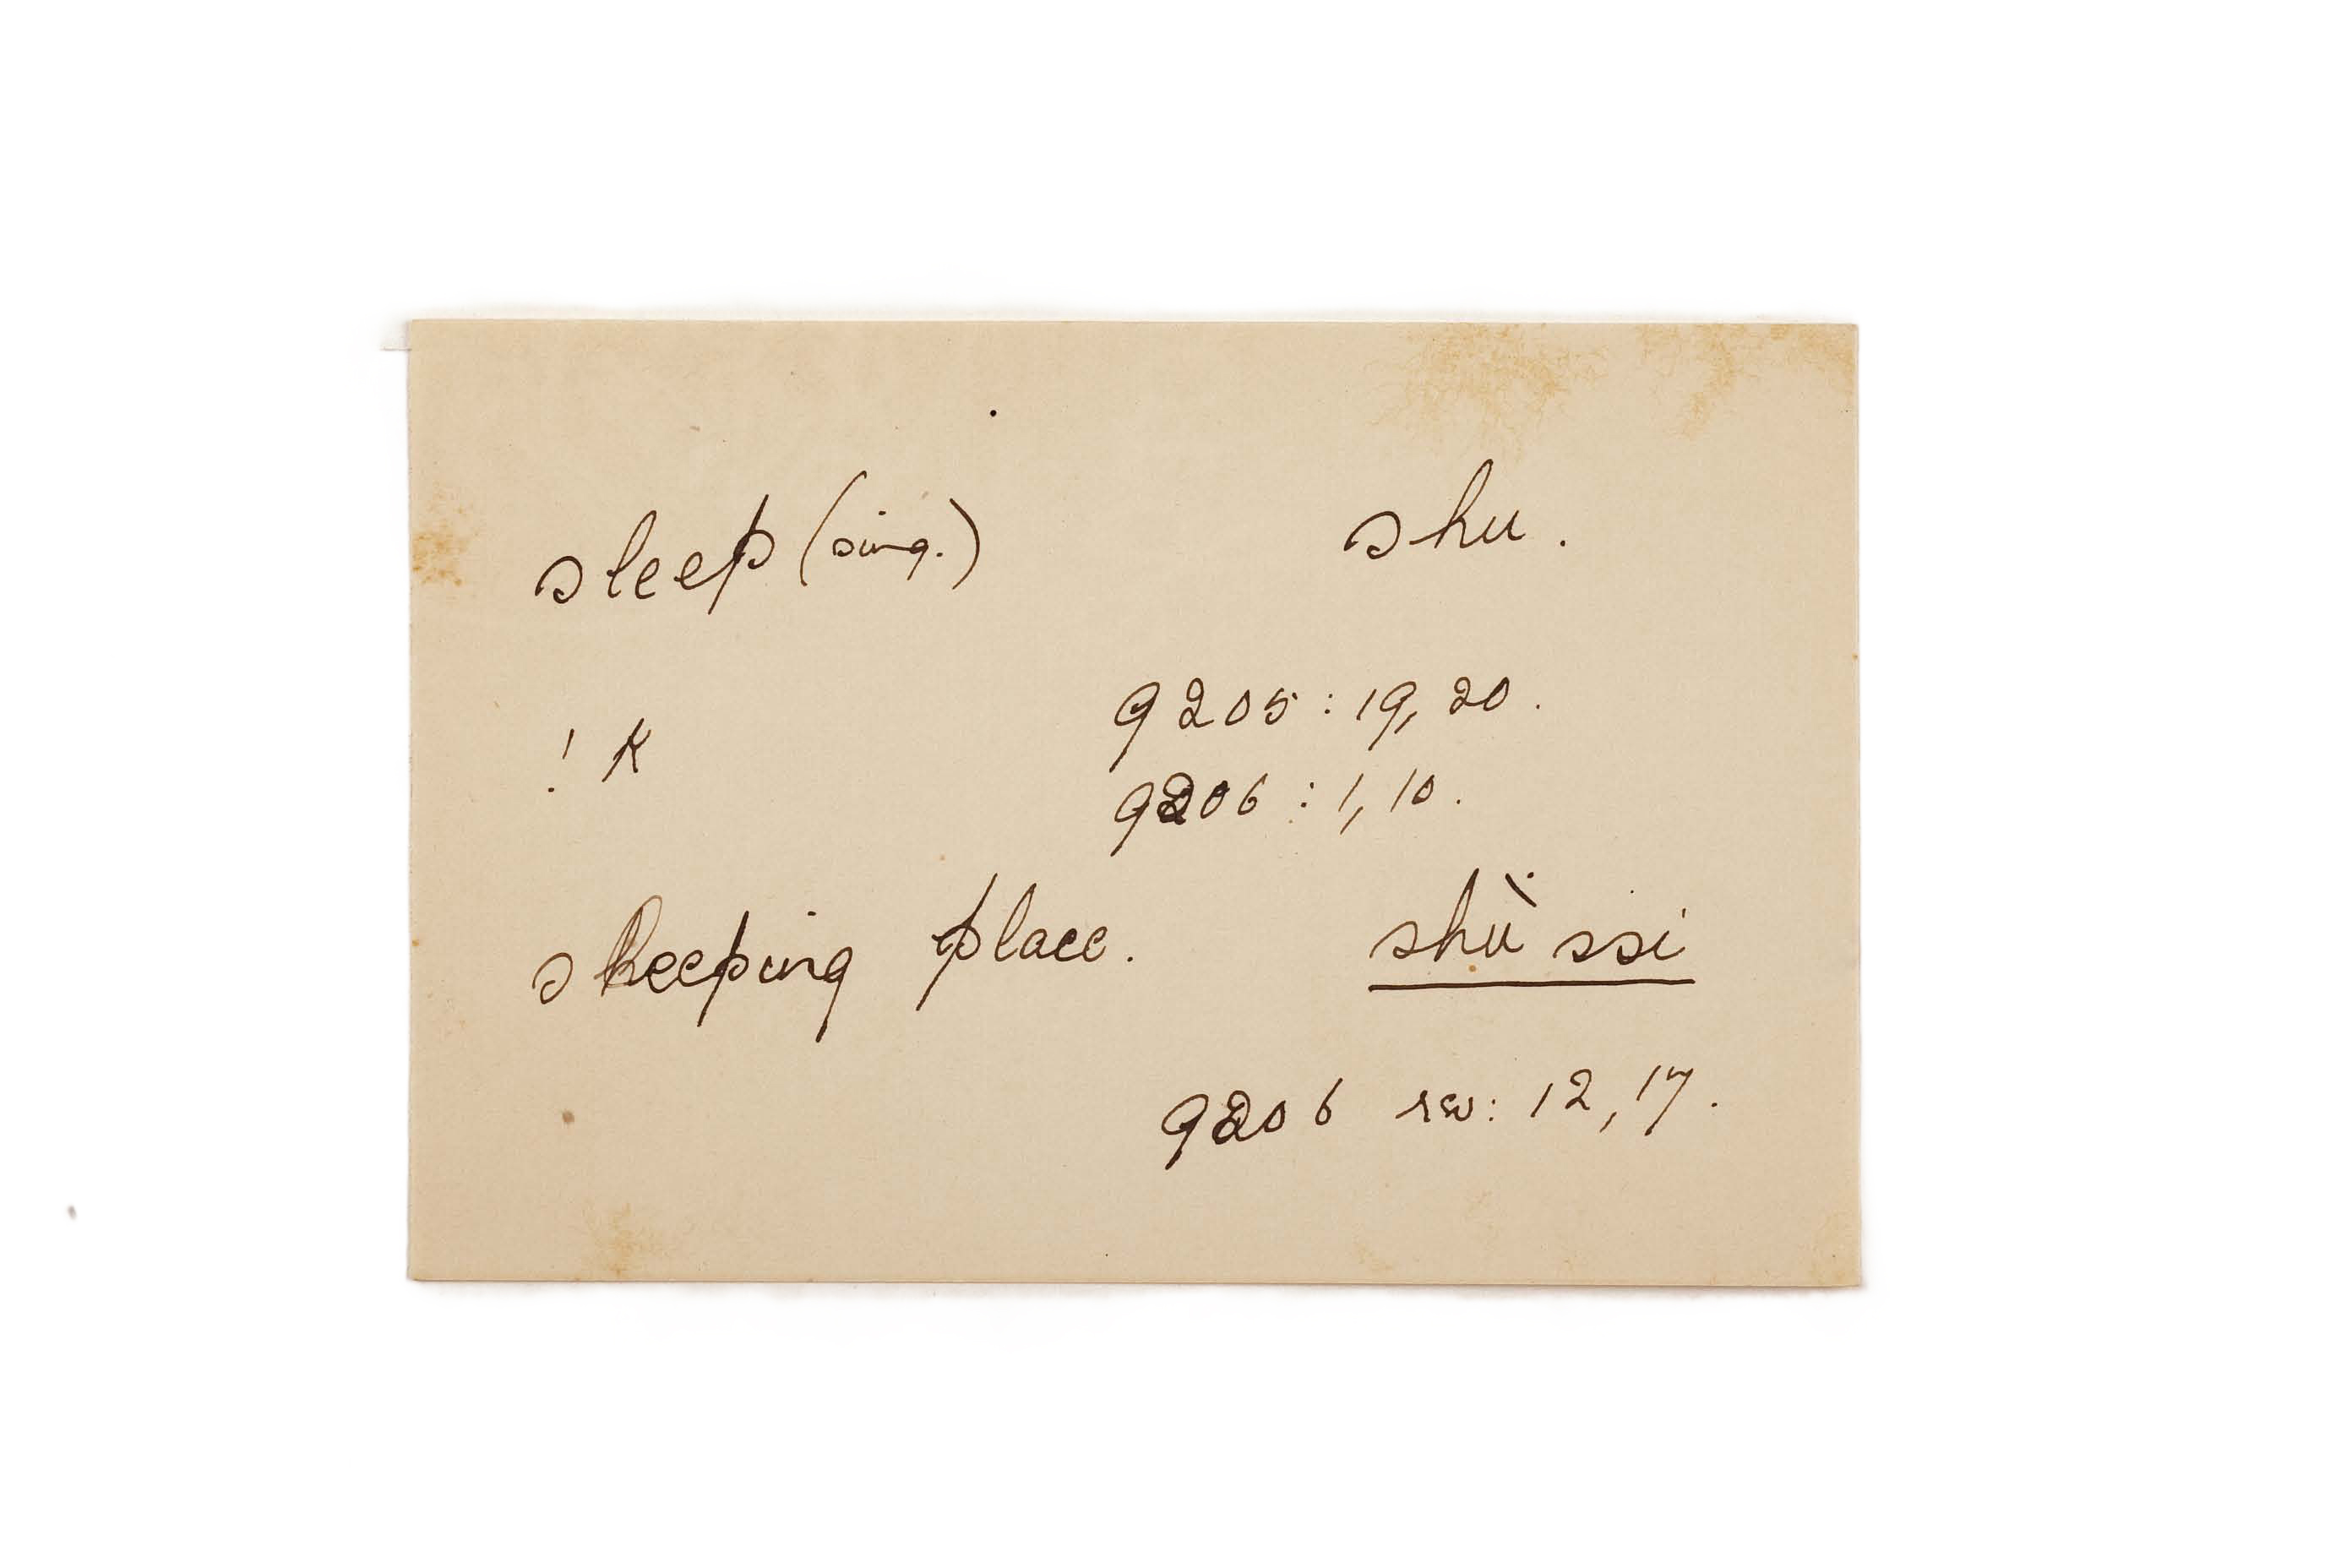 sleep (sing.) shu.
! K 9205 : 19, 20.
9206 : 1, 10.
sleeping place. shù ssi
9206 rev: 12, 17.